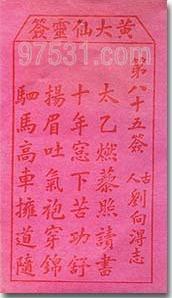 黃大仙靈簽
97531.com
第八十五簽
古人 劉向淂志
太乙燃藜照讀書
十年窓下苦功舒
揚眉吐氣袍穿錦
駟馬高車擁道隨